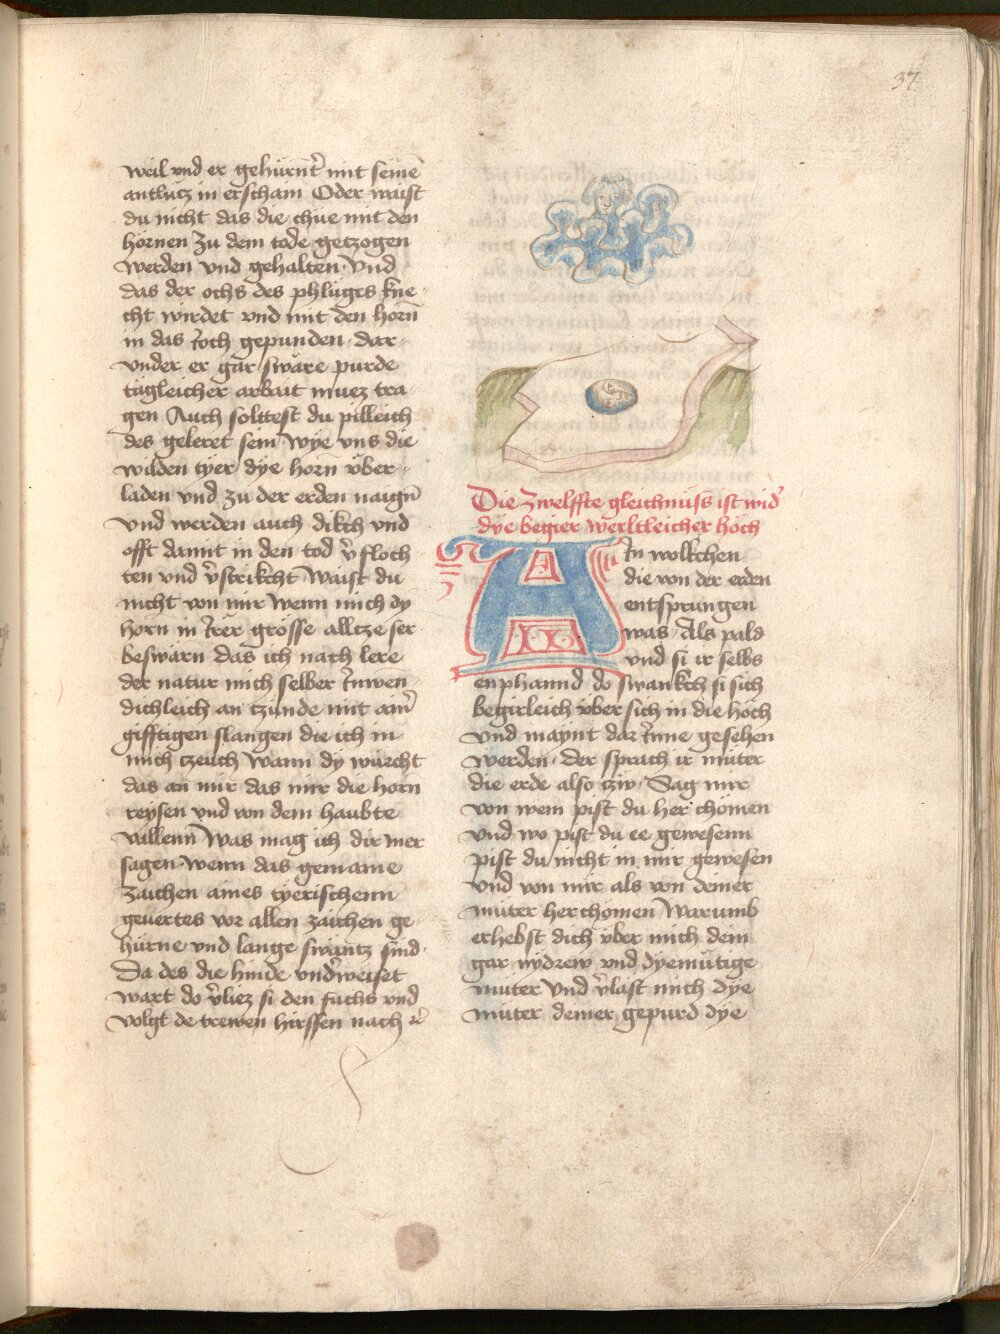 37
weil vnd er gehürnt̉ mit seinē
antlütz in erscham Oder waist
du nicht das die chüe mit den
hörnen zu dem tode getzogen
werden vnd gehalten Vnd
das der ochs des phluges kne-
cht wirdet vnd mit den horn̄
in das Joch gepunden dar-
vnder er gar swäre purde
tägleicher arbait muez tra
gen Auch solttest du pilleich
des geleret sein wye vns die
wilden tyer dye horn vber-
laden vnd zu der erden naign̄
vnd werden auch dikch vnd
offt damit in den tod v̉floch
ten vnd v̉strikcht Waist du
nicht von mir wenn mich dy
horn in Irer grösse alltze ser
beswärn das ich nach lere
der natur mich selber Inwen
dichleich an tzünde mit aīn̉
gifftigen slangen die ich in
mich tzeuch wann dy würcht
das an mir das mir die horn
reysen vnd von dem haubte
vallenn was mag ich dir mer
sagen wenn das gemaine
zaichen aines tyerischenn
geuertes vor allen zaichen ge
hürne vnd lange swäntz sind
Da des die hinde vnd̉weiset
wart do v̉liez si den fuchs vnd
volgt de trewen hirssen nach ꝛc̉
Die zwelffte gleichnüss ist wid̉
dye begier werltleicher höch
AIn wolkchen
die von der erden
entsprungen
was Als pald
vnd si ir selbs
enphannd do swankch si sich
begirleich vber sich in die höch
vnd maynt dar Inne gesehen
werden Der sprach ir müter
die erde also tzw Sag mir
von wem pist du her chömen
vnd wo pist du ee gewesenn
pist du nicht in mir gewesen
vnd von mir als von deiner
müter her chömen Warumb
erhebst dich vber mich dein
gar nydrew vnd dyemütige
müter vnd v̉last mich dye
müter deiner gepurd dye